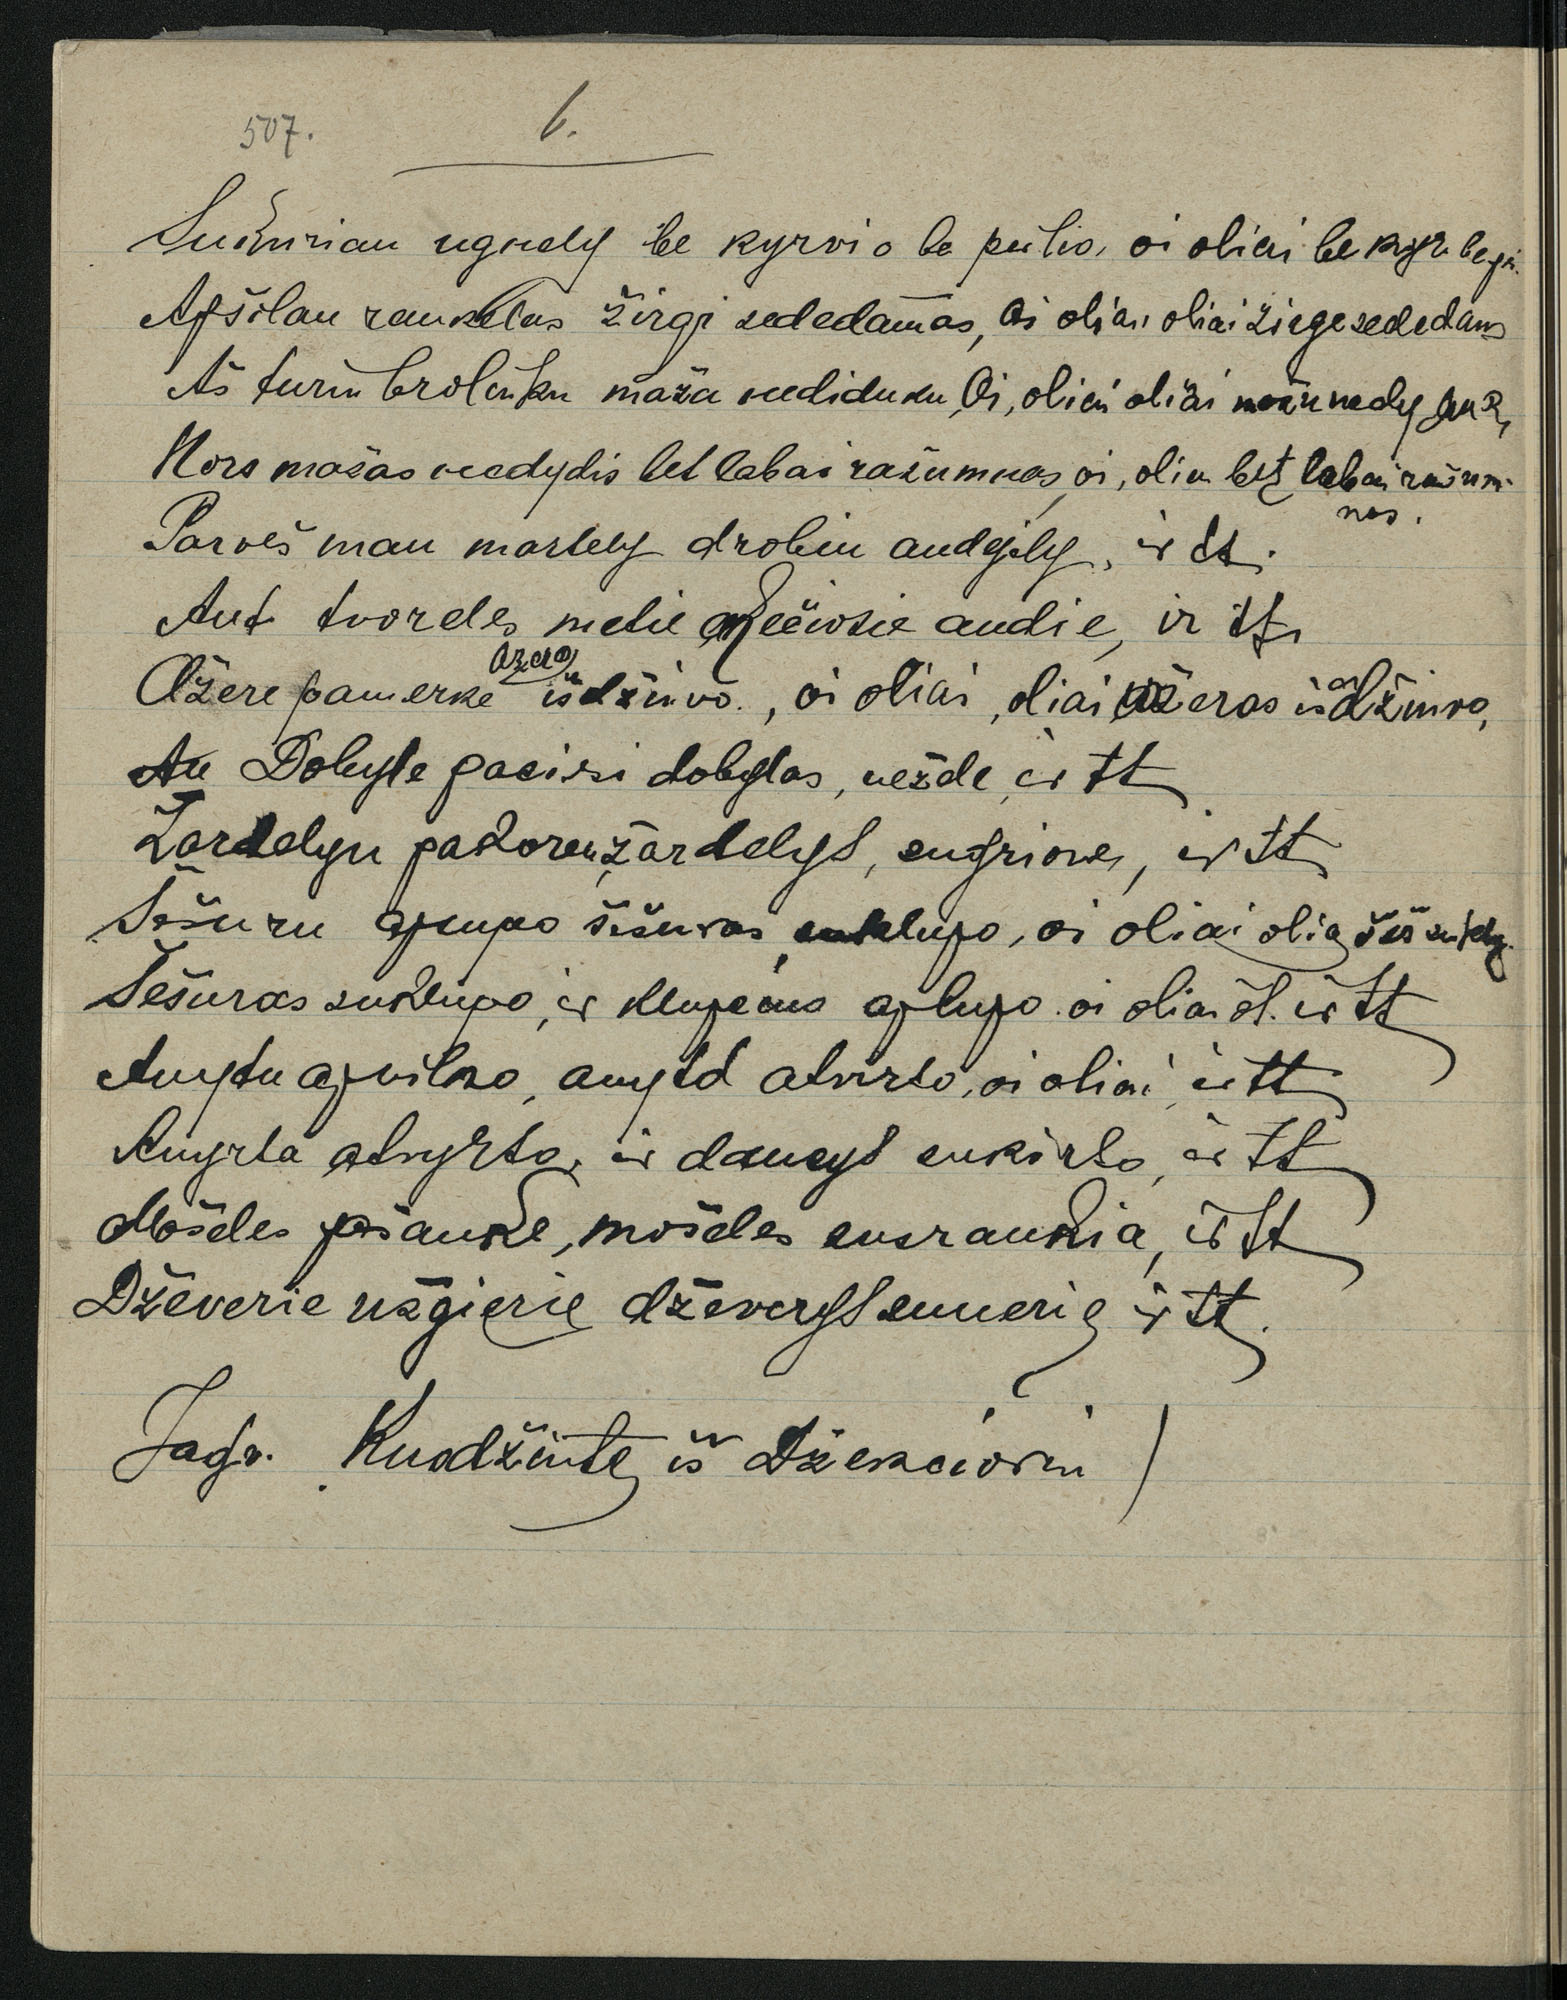 507. 6.
Sukuriau ugnely be kyrvio be pulio, oi oliai be kyr. be pi.
Apšilau rankelas žirgi sededamas, Oi oliai oliai žirge sededams
Aš turiu broliuku maža nediduku, Oi, oliai oliai mažu nedy
Nors mažas nedydis bet labairažumnas, oi, olia bet labai ražum-
nas.
Parveš man martely drobiu audėjely, ir tt.
Ant tvordes metie audie, ir tt.
Ažere pamerke ažeras išdžiuvo, oi oliai, oliai ažeras išdžiuvo,
An Dobyle paciri dobylas, nežde ir tt
Žardelyn pakoren, žardelys, sugriove, ir tt
Šešuru apsupo šešuras suklupo, oi oliai olia šeš suklp.
Šešuras suklupo, ir klupėms aplupo. oi oliai ol. ir tt
Anytu apvilko, anyta atvirto, oi oliai ir tt
Anyta atvyrto, ir dancys sukirto, ir tt
Mošeles pšauke, mošeles susraukia, ir tt
Dževerie užgierie dževerys sunerie ir tt.
Jagv. Kudžiute iš